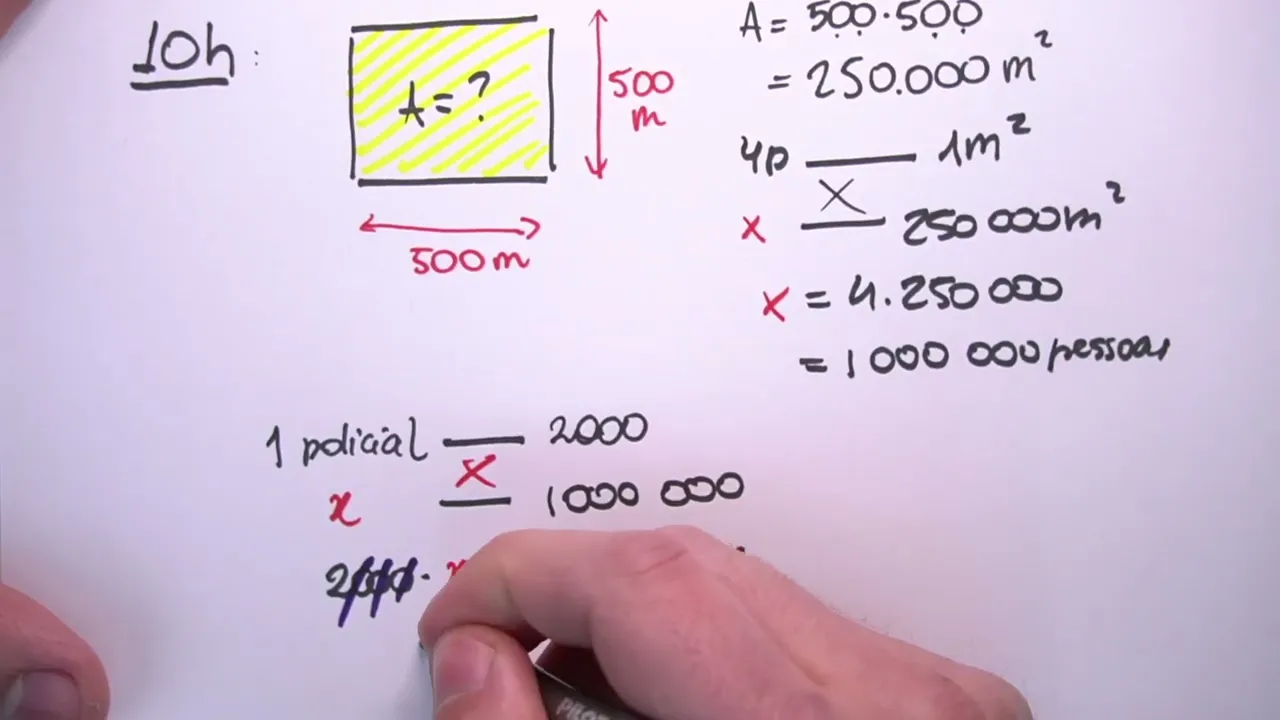 10h :
A = ?
500
m
500 m
A = 500 · 500
= 250.000 m²
4p 1m²
x 250 000m²
x = 4.250 000
= 1 000 000 pessoas
1 policial 2000
x 1000 000
2000 · x